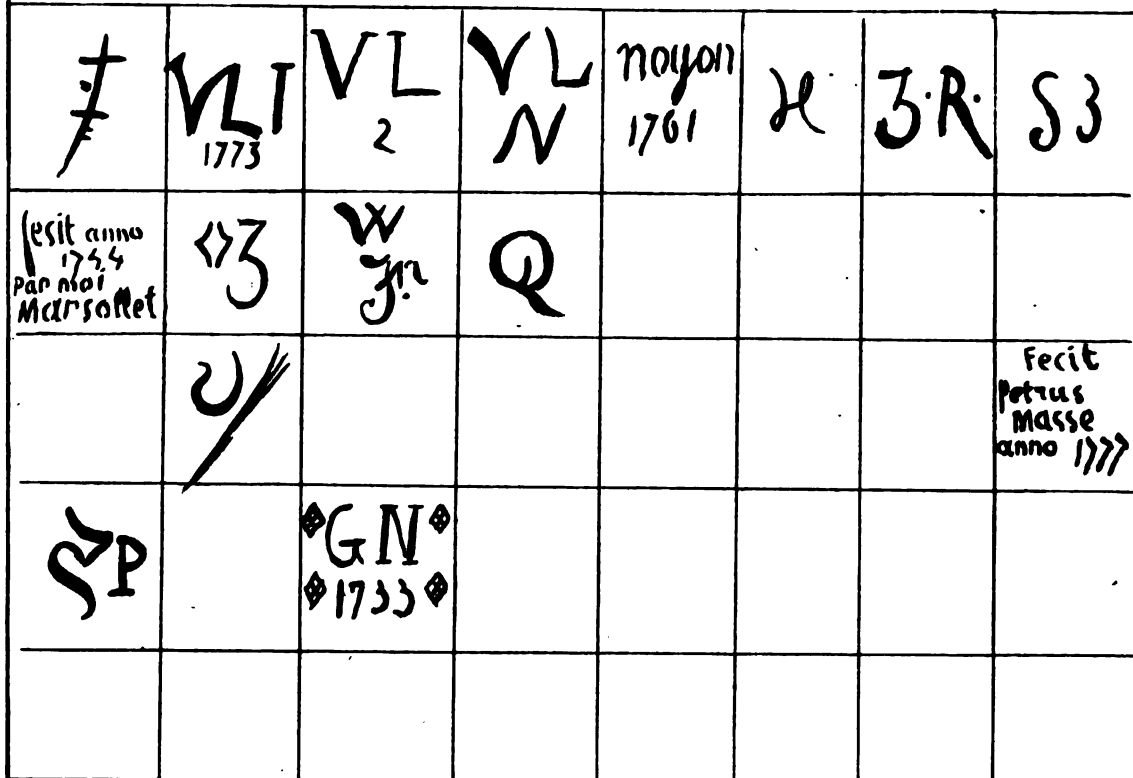 VLI
1773
VL
2
VL
N
noyon
1761
H
3·R·
S3
fesit anno
1744
par moi
Marsollet
3
W
Jr.
Q
Fecit
Petrus
Masse
anno 1777
P
GN
1733